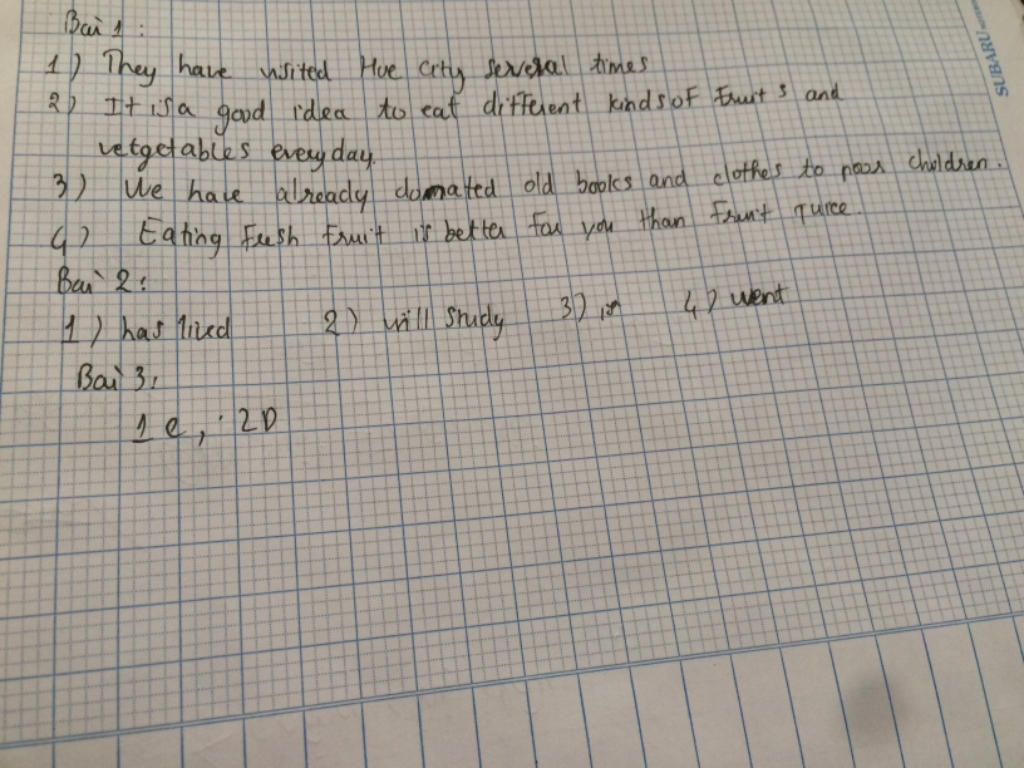 Bài 1:
1) They have visited Hue city several times
2) It is a good idea to eat different kinds of fruits and
vetgetables every day.
3) We have already domated old books and clothes to poor children.
4) Eating fresh fruit is better for you than fruit
Bài 2:
1) has lived 2) will study 3) is 4) went
Bài 3:
1 C, 2D
SUBARU